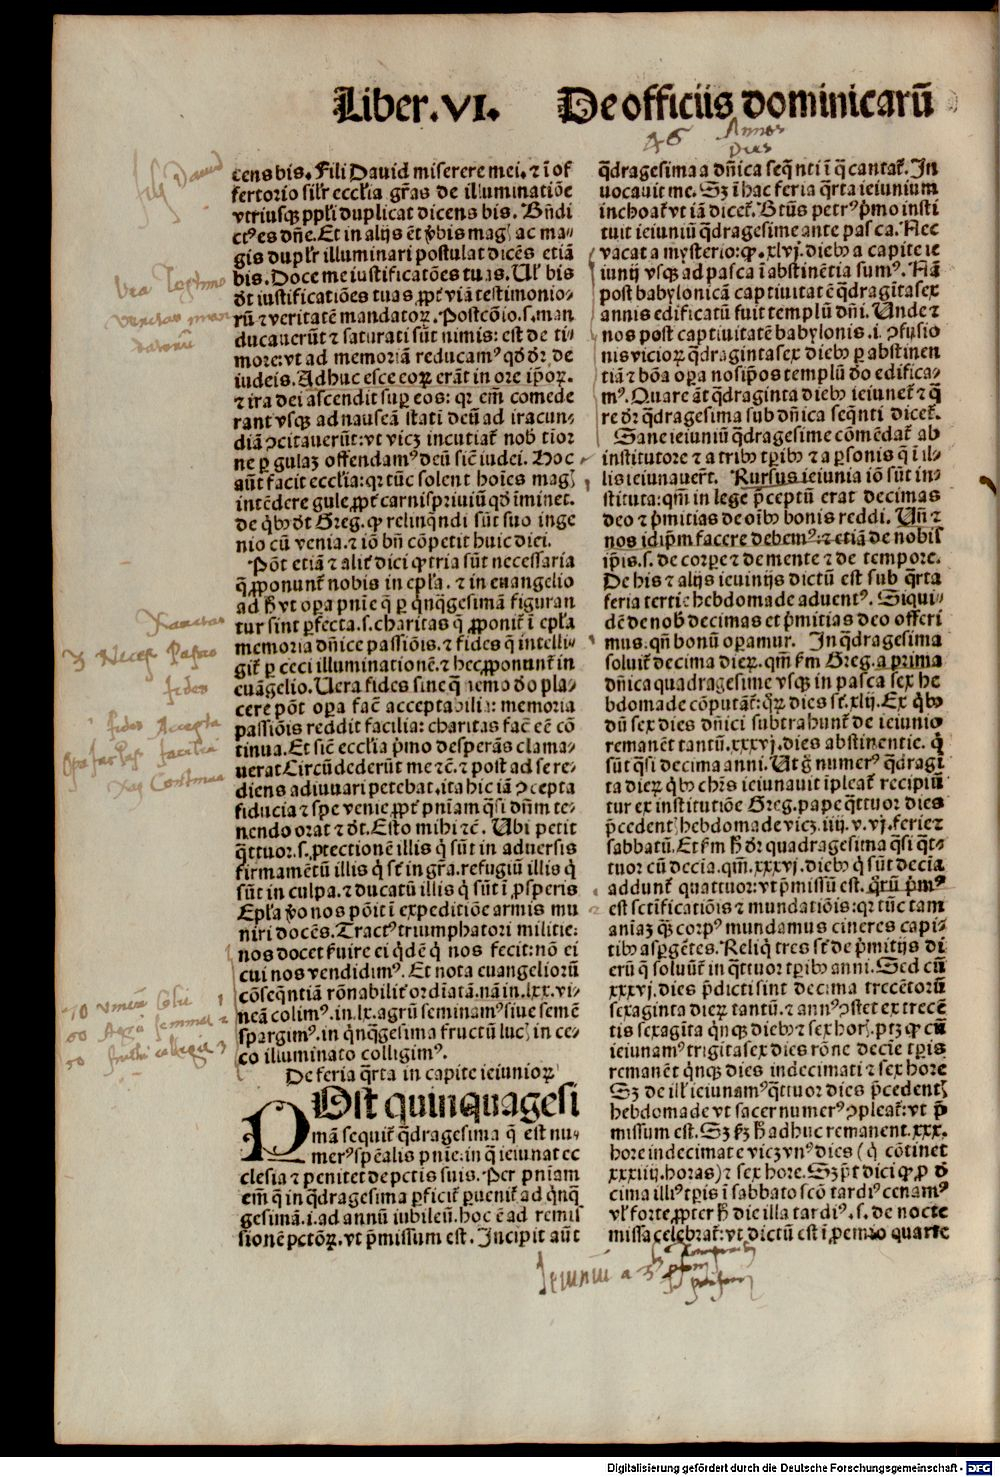 Liber.VI. De officiis dominicarū
46 Annos
Dies
fili David
cens bis. Fili David miserere mei. ⁊ ī of
fertorio silr̄ eccl̄ia gr̄as de illuminatiōe
vtriusqꝫ ppl̄i duplicat dicens bis. Bn̄di
ctꝰ es dn̄e. Et in alijs ēt v̄bis magꝭ ac ma-
gis duplr̄ illuminari postulat dicēs etiā
bis. Doce me iustificatōes tuas. Ul̓ bis
d̄t iustificatiōes tuas ꝓpt̓ viā testimonio-
rū ⁊ veritatē mandatoꝝ. Postcōio.s.man
ducauerūt ⁊ saturati sūt nimis: est de ti-
more: vt ad memoriā reducamꝰ qd̓ d̓r de
iudeis. Adhuc esce eoꝝ erāt in ore ip̄oꝝ.
⁊ ira dei ascendit suꝑ eos: qꝛ em̄ comede
rant vsqꝫ ad nauseā statī deū ad iracun-
diā ꝯcitauerūt: vt vicꝫ incutiat̓ nob̓ tīor
ne ꝑ gulaꝫ offendamꝰ deū sic̄ iudei. Hoc
aūt facit eccl̄ia: qꝛ tūc solent hoīes magꝭ
intēdere gule ꝓpt̓ carnispriuiū qd̓ īminet.
de qͥbꝰ d̄t Greg. ꝙ relinq̄ndi sūt suo inge
nio cū venia. ⁊ iō bn̄ cōpetit huic diei.
Pōt etiā ⁊ alit̓ dici ꝙ tria sūt necessaria
q̄ ꝓponunt̓ nobis in epl̄a. ⁊ in euangelio
ad h̄ vt oꝑa pnīe q̄ ꝑ qͥnqͣgesimā figuran
tur sint ꝑfecta.s.charitas q̄ ꝓponit̓ ī epl̄a
memoria dn̄ice passiōis. ⁊ fides q̄ intelli-
git̓ ꝑ ceci illuminationē. ⁊ hec ꝓponunt̓ in
euāgelio. Uera fides sine q̄ nemo d̓o pla-
cere pōt oꝑa fac̄ acceptabilia: memoria
passiōis reddit facilia: charitas fac̄ eē cō
tinua. Et sic̄ eccl̄ia pͥmo desperās clama-
uerat Circūdederūt me ⁊c̄. ⁊ post ad se re-
diens adiuuari petebat. ita hic iā ꝯcepta
fiducia ⁊ spe venie ꝓpt̓ pn̄iam qͣsi dn̄m te-
nendo orat ⁊ d̄t. Esto mihi ⁊c̄. Ubi petit
qͣttuor.s.ꝓtectionē illis qͥ sūt in aduersis
firmamētū illis qͥ st̄ in gr̄a. refugiū illis qͥ
sūt in culpa. ⁊ ducatū illis qͥ sūt ī ꝓsperis
Epl̄a v̓o nos pōit ī expeditiōe armis mu
niri docēs. Tractꝰ triumphatori militie:
nos docet ẜuire ei qͥdē qͥ nos fecit: nō ei
cui nos vendidimꝰ. Et nota euangeliorū
cōseq̄ntiā rōnabilit̓ ordīatā. nā in.lxx.vi-
neā colimꝰ. in.lx. agrū seminamꝰ siue semē
spargimꝰ. in qͥnqͣgesima fructū lucꝭ in ce-
co illuminato colligimꝰ.
De feria qͣrta in capite ieiunioꝝ
POst quinquagesi
mā sequit̓ q̄dragesima q̄ est nu-
merꝰ spēalis pnīe: in q̄ ieiunat ec
clesia ⁊ penitet de pctīs suis. Per pn̄iam
em̄ q̄ in q̄dragesima ꝑficit̓ ꝑuenit̓ ad qͥnqͣ
gesimā.i. ad annū iubileū. hoc ē ad remis
sionē pctōꝝ. vt pͥmissum est. Incipit aūt
q̄dragesima a dn̄ica seq̄nti ī q̄ cantat̓. In
vocauit me. Sꝫ ī hac feria qͣrta ieiunium
inchoat̓ vt iā dicet̓. Btūs petrꝰ pͥmo insti
tuit ieiuniū q̄dragesime ante pasca. Nec
vacat a mysterio: ꝙ.xlvj. diebꝰ a capite ie
iunij vsqꝫ ad pasca ī abstinētia sumꝰ. Nā
post babylonicā captiuitatē q̄dragītasex
annis edificatū fuit templū dn̄i. Unde ⁊
nos post captiuitatē babylonis.i. ꝯfusio
nis vicioꝝ q̄dragintasex diebꝰ ꝑ abstinen
tiā ⁊ bōa oꝑa nosip̄os templū d̓o edifica-
mꝰ. Quare āt q̄draginta diebꝰ ieiunet̓ ⁊ q̄
re d̓r q̄dragesima sub dn̄ica seq̄nti dicet̓.
Sane ieiuniū q̄dragesime cōmēdat̓ ab
institutore ⁊ a tribꝰ tꝑibꝰ ⁊ a ꝑsonis q̄ ī il-
lis ieiunauer̄t. Rursus ieiunia iō sūt in-
stituta: qm̄ in lege p̄ceptū erat decimas
deo ⁊ pͥmitias de oībꝰ bonis reddi. Un̄ ⁊
nos idip̄m facere debemꝰ: ⁊ etiā de nobis
ip̄is.s. de corꝑe ⁊ de mente ⁊ de tempore.
De his ⁊ alijs ieiunijs dictū est sub qͣrta
feria tertie hebdomade aduentꝰ. Siqui-
dē de nob̓ decimas et pͥmitias deo offeri
mus. qn̄ bonū oꝑamur. In q̄dragesima
soluit̓ decima dieꝝ. qm̄ ẜm Greg. a prima
dn̄ica quadragesime vsqꝫ in pasca sex he
bdomade cōputāt̓: qͣꝝ dies st̄.xlij. Ex qͥbꝰ
dū sex dies dn̄ici subtrahunt̓ de ieiunio
remanēt tantū.xxxvj. dies abstinentie. qͥ
sūt qͣsi decima anni. Ut g̓ numerꝰ q̄dragī
ta dieꝝ qͥbꝰ chr̄s ieiunauit īpleat̓ recipiūt
tur ex institutiōe Greg. pape qͣttuor dies
p̄cedentꝭ hebdomade vicꝫ.iiij.v.vj.ferie ⁊
sabbatū. Et ẜm h̄ d̓r quadragesima qͣsi qͣt-
tuor cū decīa. qm̄.xxxvj. diebꝰ qͥ sūt decīa
addunt̓ quattuor: vt pͥmissū est. qͣꝝū pͥmꝰ
est sctīficatiōis ⁊ mundatiōis: qꝛ tūc tam
aniaꝫ qͣꝫ corpꝰ mundamus cineres capi-
tibꝰ aspgētes. Reliqͥ tres st̄ de pͥmitijs di
erū q̄ soluūt̓ in qͣttuor tꝑibꝰ anni. Sed cū
xxxvj. dies p̄dicti sint decima trecētorū
sexaginta dieꝝ tantū. ⁊ annꝰ ꝯstet ex trecē
tis sexagīta qͥnqꝫ diebꝰ ⁊ sex horꝭ. ptꝫ ꝙ cū
ieiunamꝰ trigītasex dies rōne decīe tꝑis
remanēt qͥnqꝫ dies indecimati ⁊ sex hore
Sꝫ de ill̓ ieiunamꝰ qͣttuor dies p̄cedentꝭ
hebdomade vt sacer numerꝰ ꝯpleat̓: vt p̄
missum est. Sꝫ ẜꝫ h̄ adhuc remanent.xxx.
hore indecimate vicꝫ vnꝰ dies (qͥ cōtinet
xxxiiij.horas) ⁊ sex hore. Sꝫ p̄t dici ꝙ ꝓ d̓
cima illiꝰ tꝑis ī sabbato scō tardiꝰ cenamꝰ
vl̓ forte ꝓpter h̄ die illa tardiꝰ.s. de nocte
missa celebrat̓: vt dictū est ī ꝓemio quarte
3 Neces
fides
fides Accepta
70
60
50
Ieiuniū a 3b
Digitalisierung gefördert durch die Deutsche Forschungsgemeinschaft - DFG